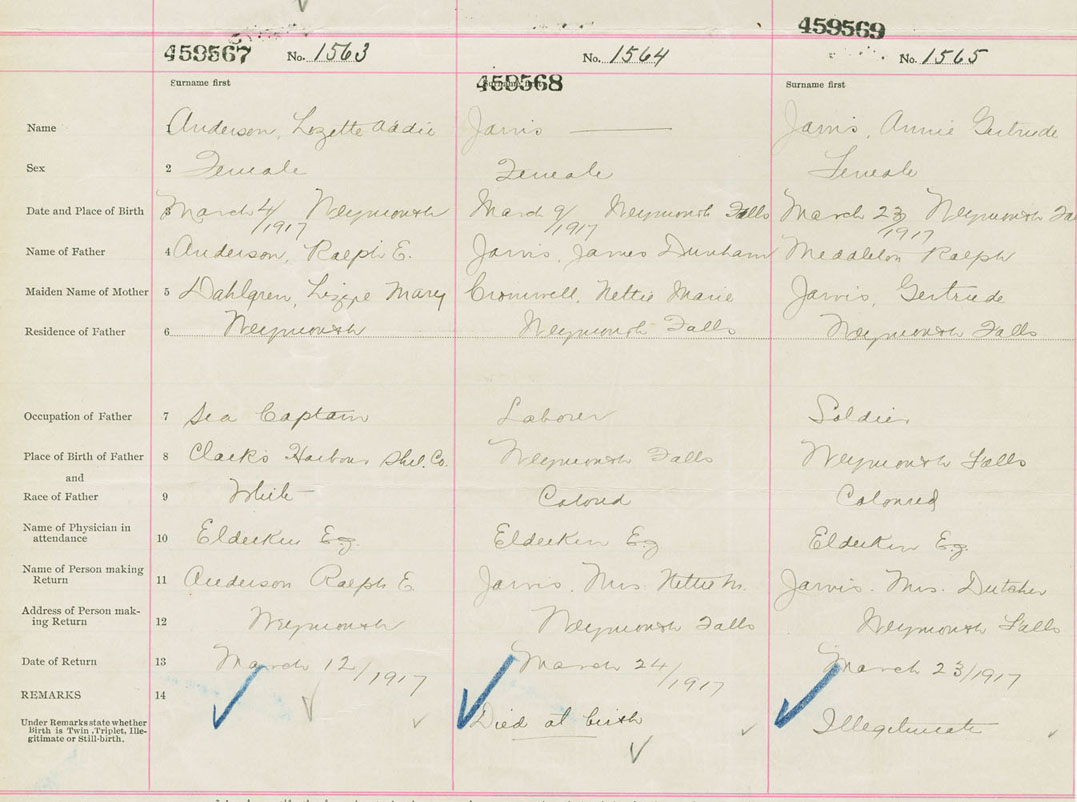 459567 No. 1563 459568 No. 1564 459569 No. 1565
Surname first Surname first Surname first
Name 1 Anderson, Lozette Addie Jarvis — Jarvis, Annie Gertrude
Sex 2 Female Female Female
Date and Place of Birth 3 March 4/1917 Weymouth March 9/1917 Weymouth Falls March 23/1917 Weymouth Fa
Name of Father 4 Anderson, Ralph E. Jarvis, James Dunham Ralph
Maiden Name of Mother 5 Dahlgren, Mary Cromwell, Nettie Marie Jarvis, Gertrude
Residence of Father 6 Weymouth Weymouth Falls Weymouth Falls
Occupation of Father 7 Sea Captain Laborer Soldier
Place of Birth of Father 8 Clarks Harbour Shel. Co. Weymouth Falls Weymouth Falls
and
Race of Father 9 White Colored Coloured
Name of Physician in
attendance 10 Elderkin Elderkin Elderkin
Name of Person making
Return 11 Anderson Ralph E. Jarvis, Mrs. Nettie M. Jarvis. Mrs. Dutcher
Address of Person mak-
ing Return 12 Weymouth Weymouth Falls Weymouth Falls
Date of Return 13 March 12/1917 March 24/1917 March 23/1917
REMARKS 14
Under Remarks state whether
Birth is Twin, Triplet, Ille-
gitimate or Still-birth. Died at birth Illegitimate